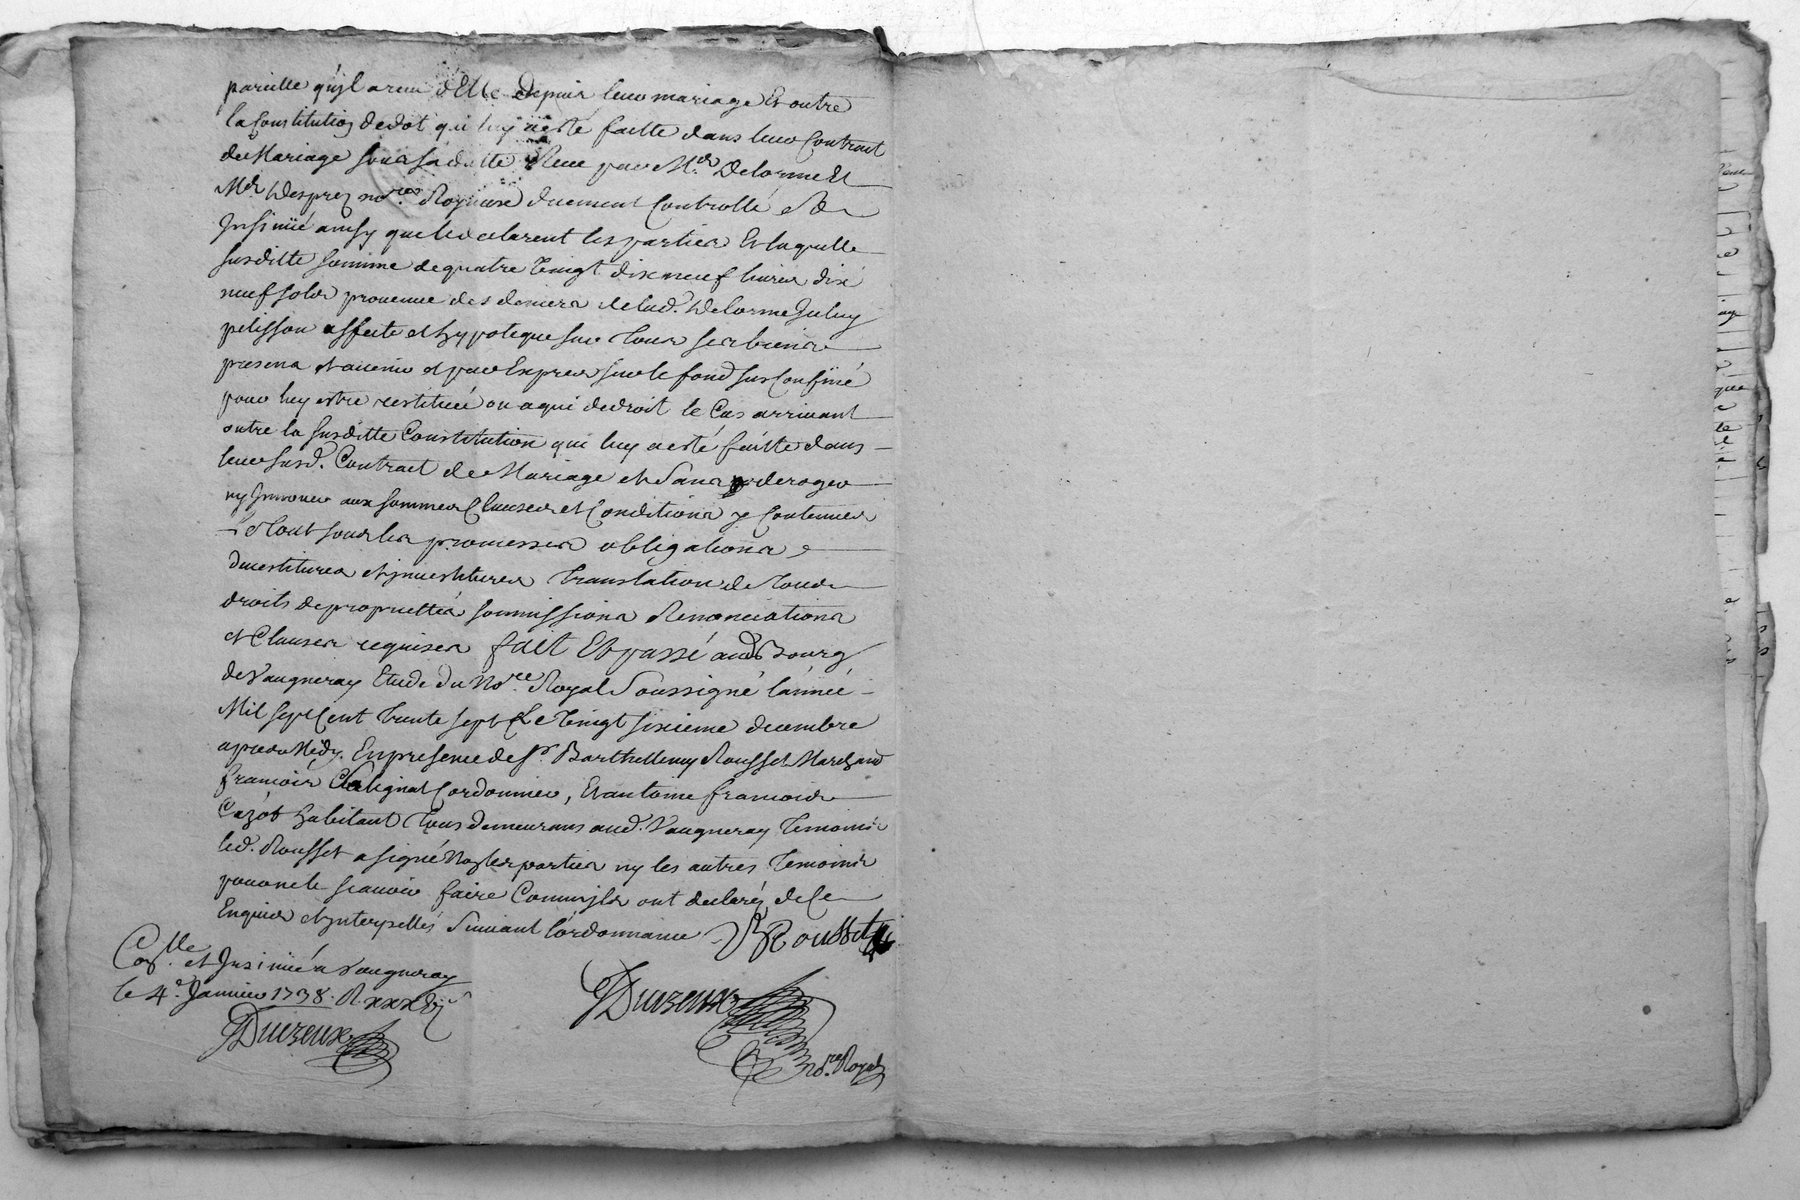 pareille qu'jl a reçu d'Elle depuis leur mariage Et outre
la Constitution de dot qui luy a esté faitte dans leur Contract
de Mariage sous sa datte Receu par Me. Delorme et
Me Desprez nores. Royaux duement Controllé et
Insinüé ainsy que le declarent les parties Et laquelle
susditte somme de quatre Vingt dix neuf livres dix
neuf sols provenue des deniers de lad. Delorme Jceluy
pelisson affecte et hypoteque sur Tous ses biens
presens et avenir et par Exprès sur le fond sus Confiné
pour luy estre restituée ou a qui de droit le Cas arrivant
outre la susditte Constitution qui luy a esté faitte dans
leur susd. Contract de Mariage et Sans deroger
ny Jnnover aux sommes Clauses et Conditions y Contenues
Le tout sous les promesses obligations
devestitures et jnvestitures Translation de Tous
droits de proprietté soumissions Renonciations
et Clauses requises fait Et passé aud. Bourg
de Vaugneray Etude du Nore. Royal Soussigné l'année
Mil sept Cent Trente sept Le Vingt sixieme decembre
après Midy. En presence de sr. Barthellemy Rousset Marchand
francois Cordonnier, Et antoine francois
Cazot habitant Tous demeurans aud. Vaugneray Temoins
led. Rousset a signé Non les parties ny les autres Temoins
pour ne le scavoir faire Comme jls ont declaréz de Ce
Enquis et jnterpellés Suivant l'ordonnance
B Rousset
Conlle. et Jnsinué a Vaugneray
le 4e. Janvier 1738. R.
Duvzeux
Duvzeux
nore. Royal